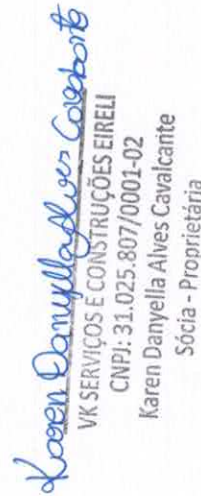 Karen Danyella Alves Cavalcante
VK SERVIÇOS E CONSTRUÇÕES EIRELI
CNPJ: 31.025.807/0001-02
Karen Danyella Alves Cavalcante
Sócia - Proprietária